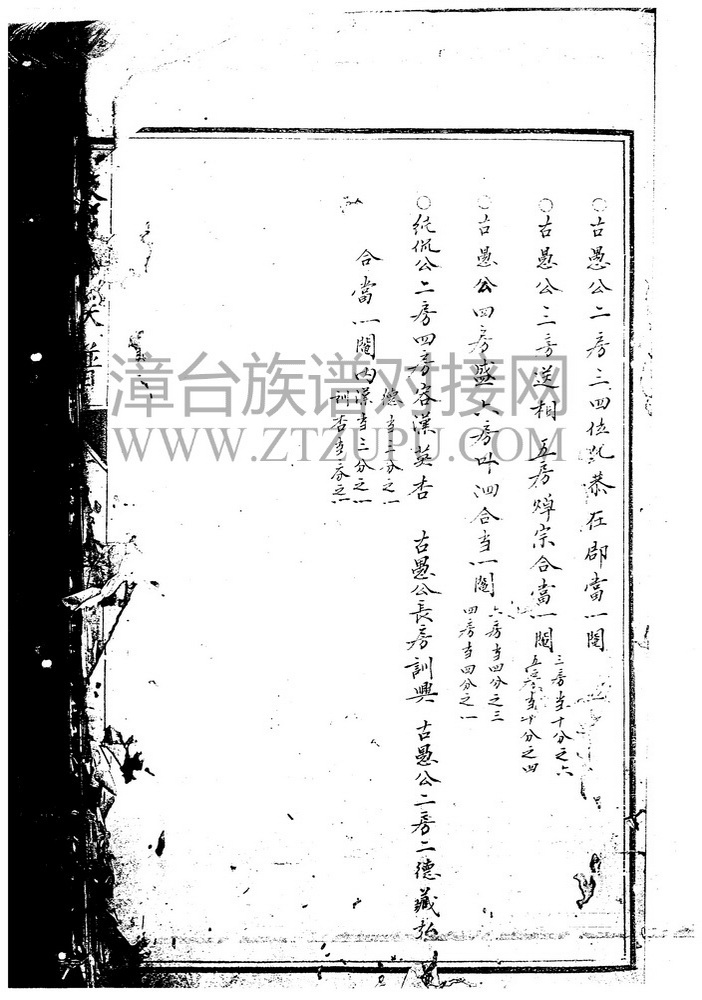 ○古愚公二房三四位批恭在郎當一鬮
○古愚公三房逆相 五房婵宗合當一鬮
三房当十分之六
五房当十分之四
○古愚公四房盛六房叶泗合当一鬮
六房当四分之三
四房当四分之一
○純侃公二房四房容漢英杏 古愚公長房訓興 古愚公二房二德藏弘
合當一鬮内漢当三分之一
德当三分之一
訓杏当三分之一
漳台族谱对接网
WWW.ZTZUPU.COM